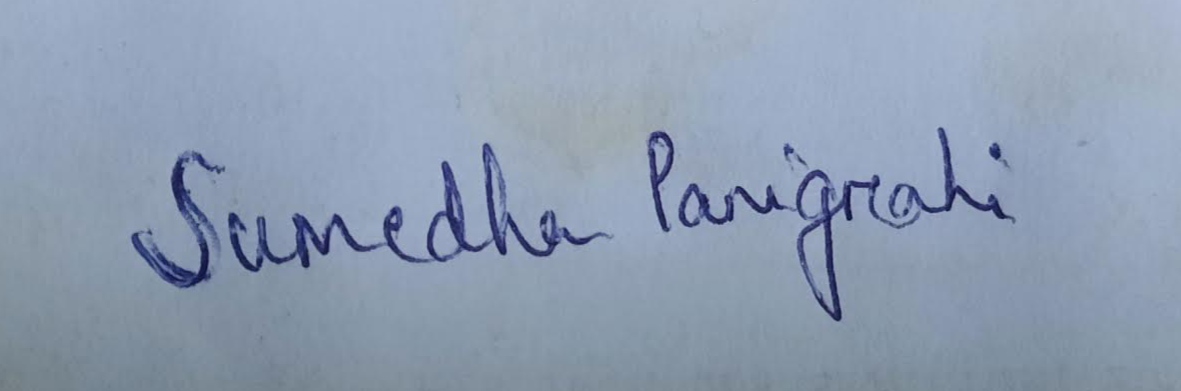 Sumedha Panigrahi